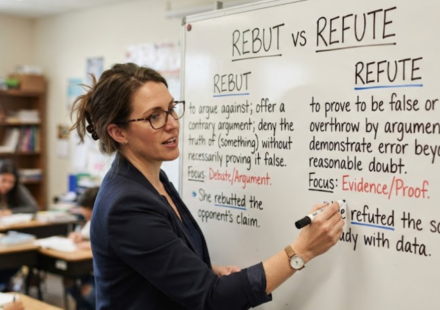 REBUT vs REFUTE
REBUT
to argue against; offer a
contrary argument; deny the
truth of (something) without
necessarily proving it false.
Focus: Debate/Argument.
• She rebutted the
opponent's claim.
REFUTE
to prove to be false or
overthrow by argument
demonstrate error beyo
reasonable doubt.
Focus: Evidence/Proof.
refuted the sc
dy with data.